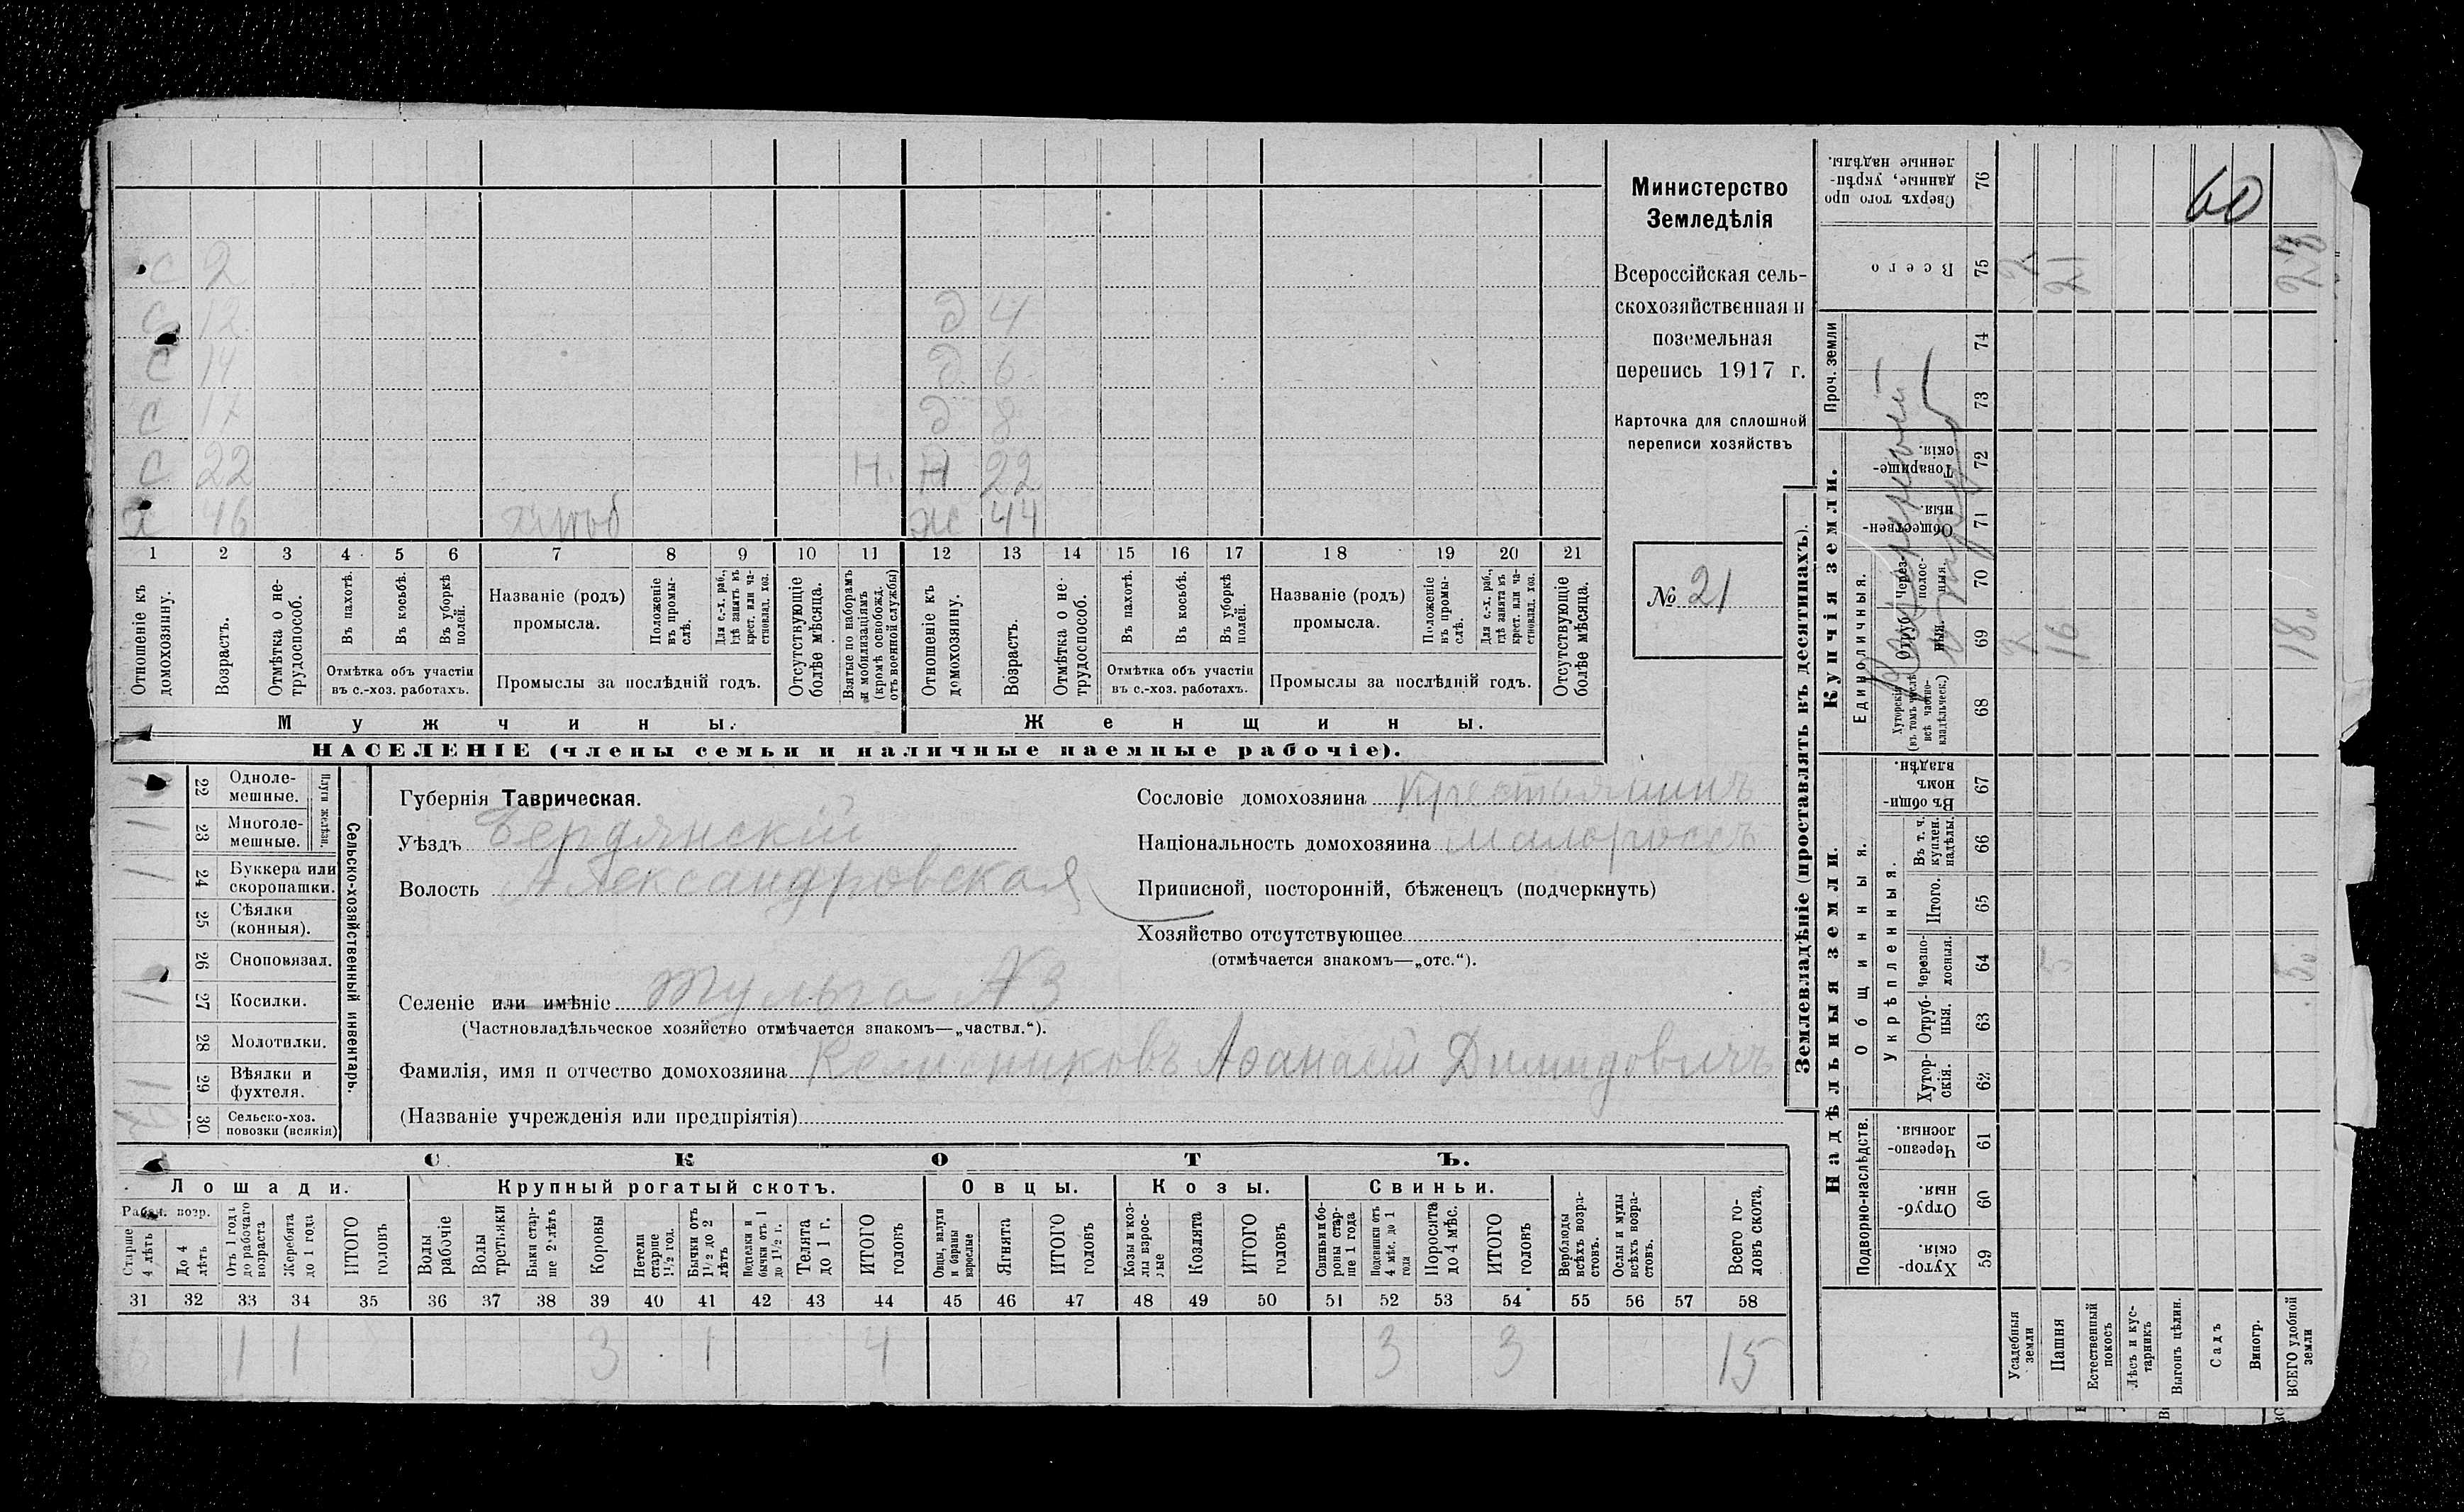 60
с 2
с 12 д 4
с 14 д 6
с 17 д 8
с 22 н. н 22
х 46 хлѣб ж 44
1 2 3 4 5 6 7 8 9 10 11 12 13 14 15 16 17 18 19 20 21
Отношеніе къ домохозяину.
Возрастъ.
Отмѣтка о не-трудоспособ.
Въ пахотѣ.
Въ косьбѣ.
Въ уборкѣ полей.
Отмѣтка объ участіи
въ с.-хоз. работахъ.
Названіе (родъ)
промысла.
Положеніе въ промы-слѣ.
Для с.-х. раб., гдѣ занятъ въ крест. или ча-стновлад. хоз.
Промыслы за послѣдній годъ.
Отсутствующіе болѣе мѣсяца.
Взятые по наборамъ и мобилизаціямъ (кромѣ освобожд. отъ военной службы)
Отношеніе къ домохозяину.
Возрастъ.
Отмѣтка о не-трудоспособ.
Въ пахотѣ.
Въ косьбѣ.
Въ уборкѣ полей.
Отмѣтка объ участіи
въ с.-хоз. работахъ.
Названіе (родъ)
промысла.
Положеніе въ промы-слѣ.
Для с.-х. раб., гдѣ занята въ крест. или ча-стновлад. хоз.
Промыслы за послѣдній годъ.
Отсутствующіе болѣе мѣсяца.
Мужчины. Женщины.
НАСЕЛЕНІЕ (члены семьи и наличные наемные рабочіе).
Министерство
Земледѣлія
Всероссійская сель-
скохозяйственная и
поземельная
перепись 1917 г.
Карточка для сплошной
переписи хозяйствъ
№ 21
Сельско-хозяйственный инвентарь.
Плуги желѣзн.
22 Одноле-
мешные.
1 23 Многоле-
мешные.
1 24 Буккера или
скоропашки.
25 Сѣялки
(конныя).
26 Сноповязал.
1 27 Косилки.
28 Молотилки.
1 29 Вѣялки и
фухтеля.
30 Сельско-хоз.
повозки (всякія)
Губернія Таврическая.
Уѣздъ Бердянскій
Волость Александровская
Селеніе или имѣніе Тульга №3
(Частновладѣльческое хозяйство отмѣчается знакомъ—„частвл.“).
Фамилія, имя и отчество домохозяина Афанасій Димидовичъ
(Названіе учрежденія или предпріятія)
Сословіе домохозяина Крестьянинъ
Національность домохозяина малороссъ
Приписной, посторонній, бѣженецъ (подчеркнуть)
Хозяйство отсутствующее
(отмѣчается знакомъ—„отс.“).
СКОТЪ.
Лошади. Крупный рогатый скотъ. Овцы. Козы. Свиньи.
Рабоч. возр.
Старше 4 лѣтъ
До 4 лѣтъ
Отъ 1 года до рабочаго возраста
Жеребята до 1 года
ИТОГО головъ
Волы рабочіе
Волы третьяки
Быки стар-ше 2 лѣтъ
Коровы
Нетели старше 1½ год.
Бычки отъ 1½ до 2 лѣтъ
Подтелки и бычки отъ 1 до 1½ г.
Телята до 1 г.
ИТОГО головъ
Овцы, валухи и бараны взрослые
Ягнята
ИТОГО головъ
Козы и коз-лы взрос-лые
Козлята
ИТОГО головъ
Свиньи и бо-ровы стар-ше 1 года
Подсвинки отъ 4 мѣс. до 1 года
Поросята до 4 мѣс.
ИТОГО головъ
Верблюды всѣхъ возра-стовъ.
Ослы и мулы всѣхъ возра-стовъ.
Всего го-ловъ скота.
31 32 33 34 35 36 37 38 39 40 41 42 43 44 45 46 47 48 49 50 51 52 53 54 55 56 57 58
6 1 1 8 3 1 4 3 3 15
Землевладѣніе (проставлять въ десятинахъ).
Надѣльныя земли. Купчія земли. Проч. земли
Подворно-наслѣдств.
Общинныя.
Укрѣпленныя.
Единоличныя.
Хутор-скія. 59
Отруб-ныя. 60
Черезпо-лосныя. 61
Хутор-скія. 62
Отруб-ныя. 63
Черезпо-лосныя. 64
Итого. 65
Въ т. ч. куплен. надѣлы. 66
Въ общи-номъ владѣн. 67
Хуторскія (въ томъ числѣ всѣ частно-владѣльческ.) 68
Отруб-ныя. 69
Через-полос-ныя. 70
Обществен-ныя. 71
Товарище-скія. 72
73
74
Всего 75
Сверхъ того про-данные, укрѣп-ленные надѣлы. 76
Усадебныя земли 2 2
Пашня 5 16 21
Естественный покосъ
Лѣсъ и кус-тарникъ
Выгонъ цѣлин.
Садъ
Виногр.
ВСЕГО удобной земли 5 18 23